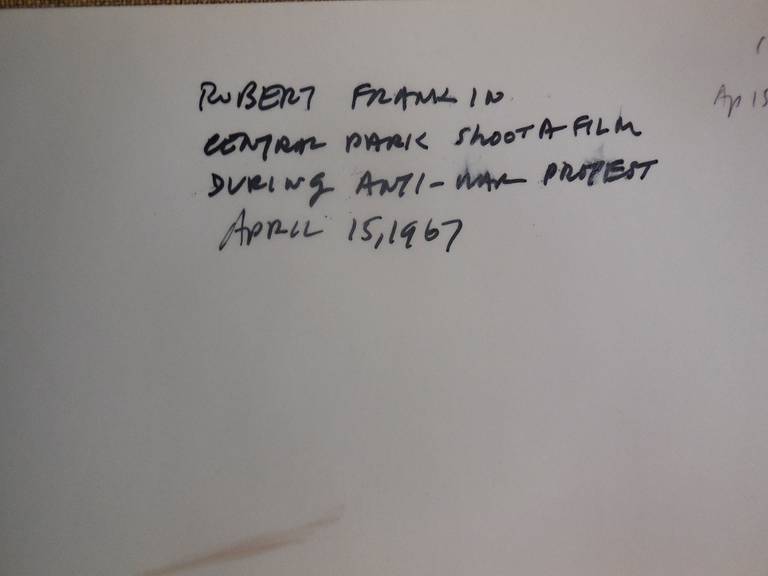 ROBERT FRANK IN
CENTRAL PARK SHOOT A FILM
DURING ANTI-WAR PROTEST
APRIL 15, 1967
Ap 15